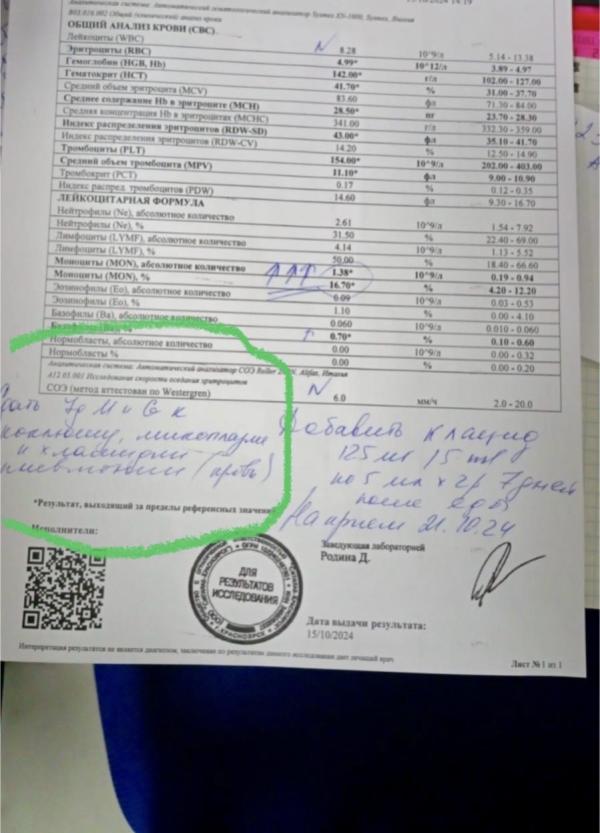 15/10/2024 14:19
Аналитическая система: Автоматический гематологический анализатор Sysmex XN-1000, Sysmex, Япония
B03.016.002 Общий (клинический) анализ крови
ОБЩИЙ АНАЛИЗ КРОВИ (CBC)
Лейкоциты (WBC) N 8.28 10^9/л 5.14 - 13.38
Эритроциты (RBC) 4.99* 10^12/л 3.89 - 4.97
Гемоглобин (HGB, Hb) 142.00* г/л 102.00 - 127.00
Гематокрит (HCT) 41.70* % 31.00 - 37.70
Средний объем эритроцита (MCV) 83.60 фл 71.30 - 84.00
Среднее содержание Hb в эритроците (MCH) 28.50* пг 23.70 - 28.30
Средняя концентрация Hb в эритроцитах (MCHC) 341.00 г/л 332.30 - 359.00
Индекс распределения эритроцитов (RDW-SD) 43.00* фл 35.10 - 41.70
Индекс распределения эритроцитов (RDW-CV) 14.20 % 12.50 - 14.90
Тромбоциты (PLT) 154.00* 10^9/л 202.00 - 403.00
Средний объем тромбоцита (MPV) 11.10* фл 9.00 - 10.90
Тромбокрит (PCT) 0.17 % 0.12 - 0.35
Индекс распред. тромбоцитов (PDW) 14.60 фл 9.30 - 16.70
ЛЕЙКОЦИТАРНАЯ ФОРМУЛА
Нейтрофилы (Ne), абсолютное количество 2.61 10^9/л 1.54 - 7.92
Нейтрофилы (Ne), % 31.50 % 22.40 - 69.00
Лимфоциты (LYMF), абсолютное количество 4.14 10^9/л 1.13 - 5.52
Лимфоциты (LYMF), % 50.00 % 18.40 - 66.60
Моноциты (MON), абсолютное количество ↑↑↑ 1.38* 10^9/л 0.19 - 0.94
Моноциты (MON), % 16.70* % 4.20 - 12.20
Эозинофилы (Eo), абсолютное количество 0.09 10^9/л 0.03 - 0.53
Эозинофилы (Eo), % 1.10 % 0.00 - 4.10
Базофилы (Ba), абсолютное количество 0.060 10^9/л 0.010 - 0.060
Базофилы (Ba), % ↑ 0.70* % 0.10 - 0.60
Нормобласты, абсолютное количество 0.00 10^9/л 0.00 - 0.32
Нормобласты % 0.00 % 0.00 - 0.20
Аналитическая система: Автоматический анализатор СОЭ Roller Alifax, Италия
A12.05.001 Исследование скорости оседания эритроцитов
СОЭ (метод аттестован по Westergren) N 6.0 мм/ч 2.0 - 20.0
Ig M и G к
коклюшу, микоплазме
и хламидии
пневмонии (кровь)
Добавить клацид
125мг/5мл
по 5 мл х 2р 7 дней
после еды
На прием 21.10.24
*Результат, выходящий за пределы референсных значений
Исполнители:
Заведующая лабораторией
Родина Д.
ДЛЯ
РЕЗУЛЬТАТОВ
ИССЛЕДОВАНИЯ
КРАСНОЯРСК
Дата выдачи результата:
15/10/2024
Интерпретация результата не является диагнозом, заключение по результатам данного исследования дает лечащий врач.
Лист №1 из 1